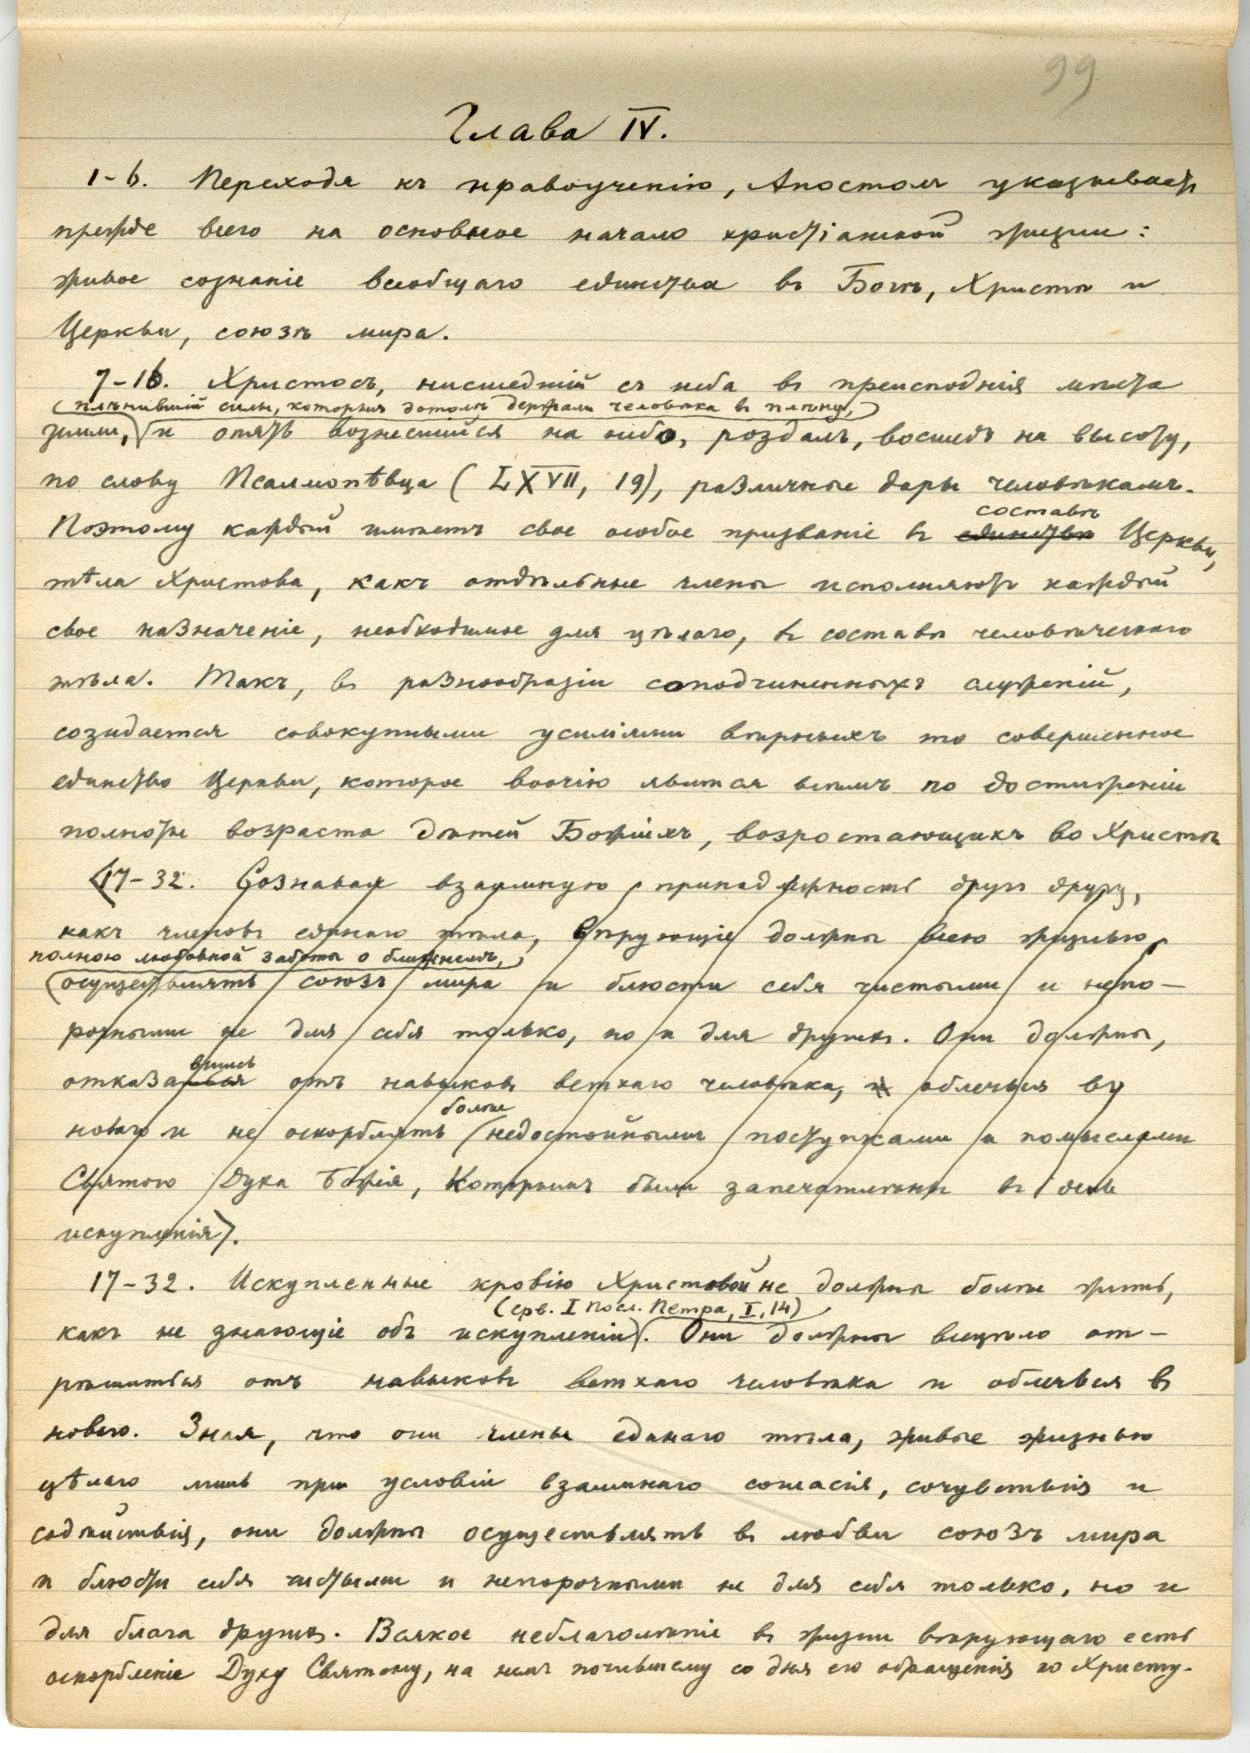 99
Глава IV.
1-6. Переходя къ нравоученію, Апостолъ указываетъ
прежде всего на основное начало христіанской жизни:
живое сознаніе всеобщаго единства въ Богѣ, Христѣ и
Церкви, союзъ мира.
7-16. Христосъ, нисшедшій съ неба въ преисподнія мѣста
(плѣнившій силы, которыя дотолѣ держали человѣка въ плѣну,)
земли, и опять вознесшійся на небо, роздалъ, восшедъ на высоту,
по слову Псалмопѣвца (LXVII, 19), различные дары человѣкамъ.
составѣ
Поэтому каждый имѣетъ свое особое призваніе въ единствѣ Церкви,
тѣла Христова, какъ отдѣльные члены исполняютъ каждый
свое назначеніе, необходимое для цѣлаго, въ составѣ человѣческаго
тѣла. Такъ, въ разнообразіи соподчиненныхъ служеній,
созидается совокупными усиліями вѣрныхъ то совершенное
единство Церкви, которое воочію явится всѣмъ по достиженіи
полноты возраста дѣтей Божіихъ, возростающихъ во Христѣ
<17-32. Сознавая взаимную принадлежность другъ другу,
какъ членовъ единаго тѣла, вѣрующіе должны всею жизнью,
полною любовной заботы о ближнемъ,
осуществлять союзъ мира и блюсти себя чистыми и непо-
рочными не для себя только, но и для другихъ. Они должны,
вшись
отказаться отъ навыковъ ветхаго человѣка, и облечься въ
болѣе
новаго и не оскорблять недостойными поступками и помыслами
Святого Духа Божія, Которымъ были запечатлѣны въ день
искупленія>.
17-32. Искупленные кровію Христовой не должны болѣе жить,
(срв. I посл. Петра, I, 14)
какъ не знающіе объ искупленіи. Они должны всецѣло от-
рѣшиться отъ навыковъ ветхаго человѣка и облечься въ
новаго. Зная, что они члены единаго тѣла, живые жизнью
цѣлаго лишь при условіи взаимнаго согласія, сочувствія и
содѣйствія, они должны осуществлять въ любви союзъ мира
и блюсти себя чистыми и непорочными не для себя только, но и
для блага другихъ. Всякое неблаголѣпіе въ жизни вѣрующаго есть
оскорбленіе Духу Святому, на немъ почившему со дня его обращенія ко Христу.